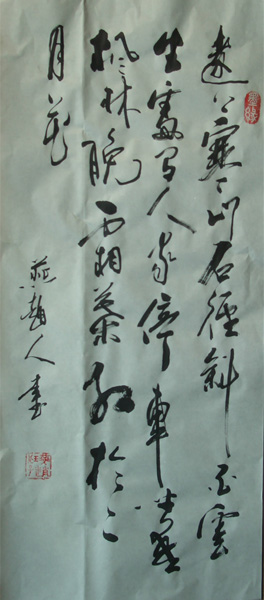 遠上寒山石徑斜白雲
生處有人家停車坐愛
楓林晚霜葉紅於二
月花
燕趙人書